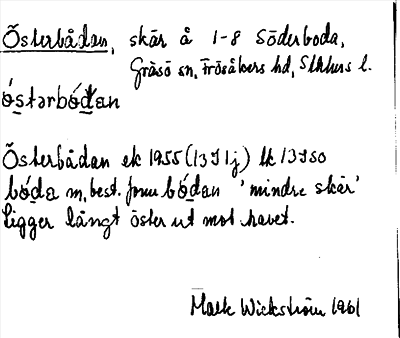 Österbådan, skär å 1-8 Söderboda,
Gräsö sn, Frösåkers hd, Sthlms l.
ó̲stərbó̲dan
Österbådan ek 1955 (13I1j) lk 13I50
bó̲da m, best. form bó̲dan 'mindre skär'
Ligger långt öster ut mot havet.
Maek Wickström 1961